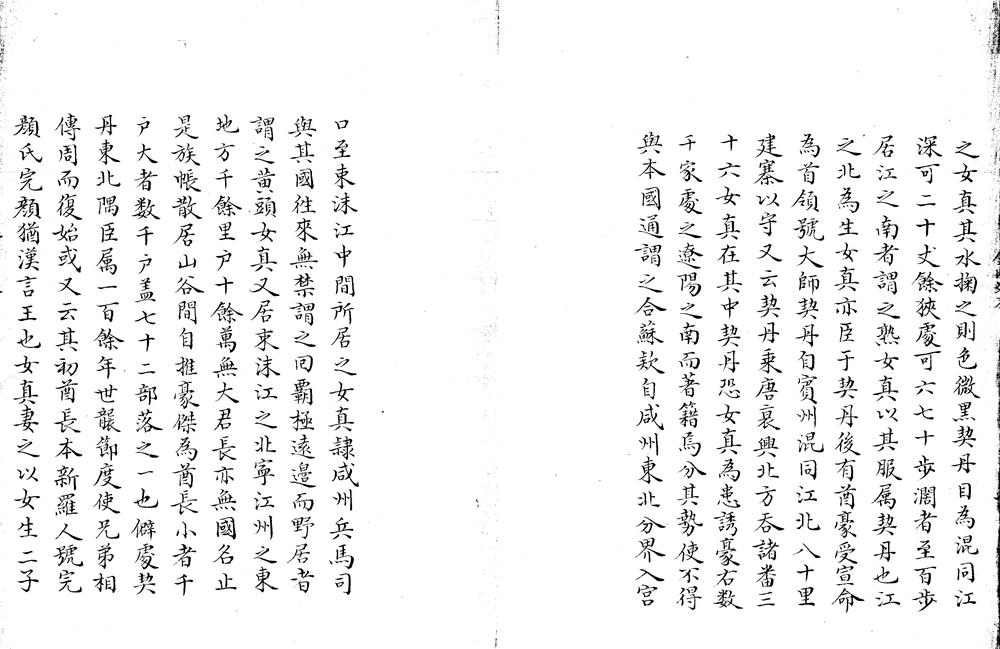 之女真其水掬之則色微黒契丹目為混同江
深可二十丈餘狹處可六七十步濶者至百步
居江之南者謂之熟女真以其服属契丹也江
之北為生女真亦臣于契丹後有酋豪受宣命
為首領號大師契丹自賓州混同江北八十里
建寨以守又云契丹乘唐衰興北方吞諸番三
十六女真在其中契丹恐女真為患誘豪右数
千家處之遼陽之南而著籍焉分其勢使不得
與本國通謂之合蘇欵自咸州東北分界入宫
口至束沫江中間所居之女真隷咸州兵馬司
與其國往來無禁謂之回霸極遠邉而野居者
謂之黄頭女真又居束沫江之北寧江州之東
地方千餘里户十餘萬無大君長亦無國名止
是族帳散居山谷間自推豪傑為酋長小者千
户大者数千户盖七十二部落之一也僻處契
丹東北隅臣属一百餘年世襲節度使兄弟相
傳周而復始或又云其初酋長本新羅人號完
顔氏完顔猶漢言王也女真妻之以女生二子